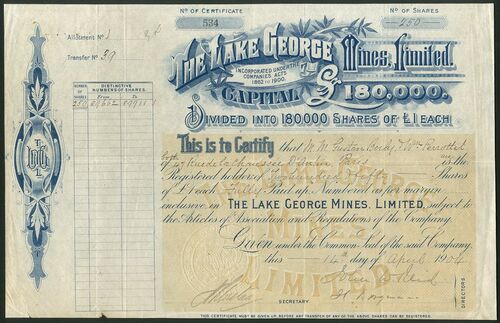 No OF CERTIFICATE
534
No OF SHARES
250
Allotment No
Transfer No 39
THE LAKE GEORGE MINES, LIMITED.
INCORPORATED UNDER THE
COMPANIES ACTS
1862 TO 1900.
CAPITAL £180,000.
DIVIDED INTO 180000 SHARES OF £1 EACH
NUMBER OF SHARES
DISTINCTIVE NUMBERS OF SHARES.
From To
250
This is to Certify that
of 47 Rue de la Chaussee D'Antin Paris
Registered holders Two hundred & Fifty Shares
of £1 each Fully Paid up. Numbered as per margin
inclusive in THE LAKE GEORGE MINES, LIMITED, subject to
the Articles of Association and Regulations of the Company.
Given under the Common Seal of the said Company,
this 14th day of April 190
SECRETARY
DIRECTORS
THIS CERTIFICATE MUST BE GIVEN UP, BEFORE ANY TRANSFER OF ANY OF THE ABOVE SHARES CAN BE REGISTERED.